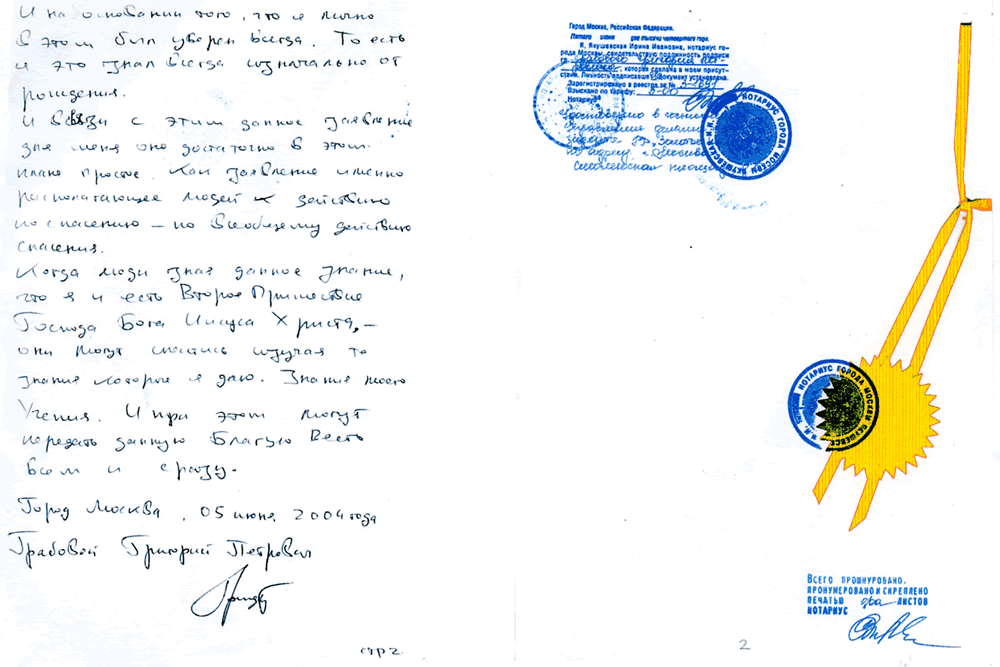 И на основании того, что я лично
в этом был уверен всегда. То есть
и это знал всегда изначально от
рождения.
И в связи с этим данное заявление
для меня оно достаточно в этом
плане простое. Как заявление именно
располагающее людей к действию
по спасению – по Всеобщему действию
спасения.
Когда люди зная данное знание,
что я и есть Второе Пришествие
Господа Бога Иисуса Христа, –
они могут спастись изучая те
знания которые я даю. Знания моего
Учения. И при этом могут
передать данную Благую Весть
всем и сразу.
Город Москва, 05 июня 2004 года
Грабовой Григорий Петрович
стр 2
Город Москва, Российская Федерация.
Пятого июня две тысячи четвертого года.
Я, Якушевская Ирина Ивановна, нотариус го-
рода Москвы, свидетельствую подлинность подписи
гр. Грабового Григория Пет-
ровича, которая сделана в моем присут-
ствии. Личность подписавшего документ установлена.
Зарегистрировано в реестре за №
Взыскано по тарифу:
Нотариус
НОТАРИУС ГОРОДА МОСКВЫ ЯКУШЕВСКАЯ И.И.
НОТАРИУС ГОРОДА МОСКВЫ
ВСЕГО ПРОШНУРОВАНО,
ПРОНУМЕРОВАНО И СКРЕПЛЕНО
ПЕЧАТЬЮ два ЛИСТОВ
НОТАРИУС
2